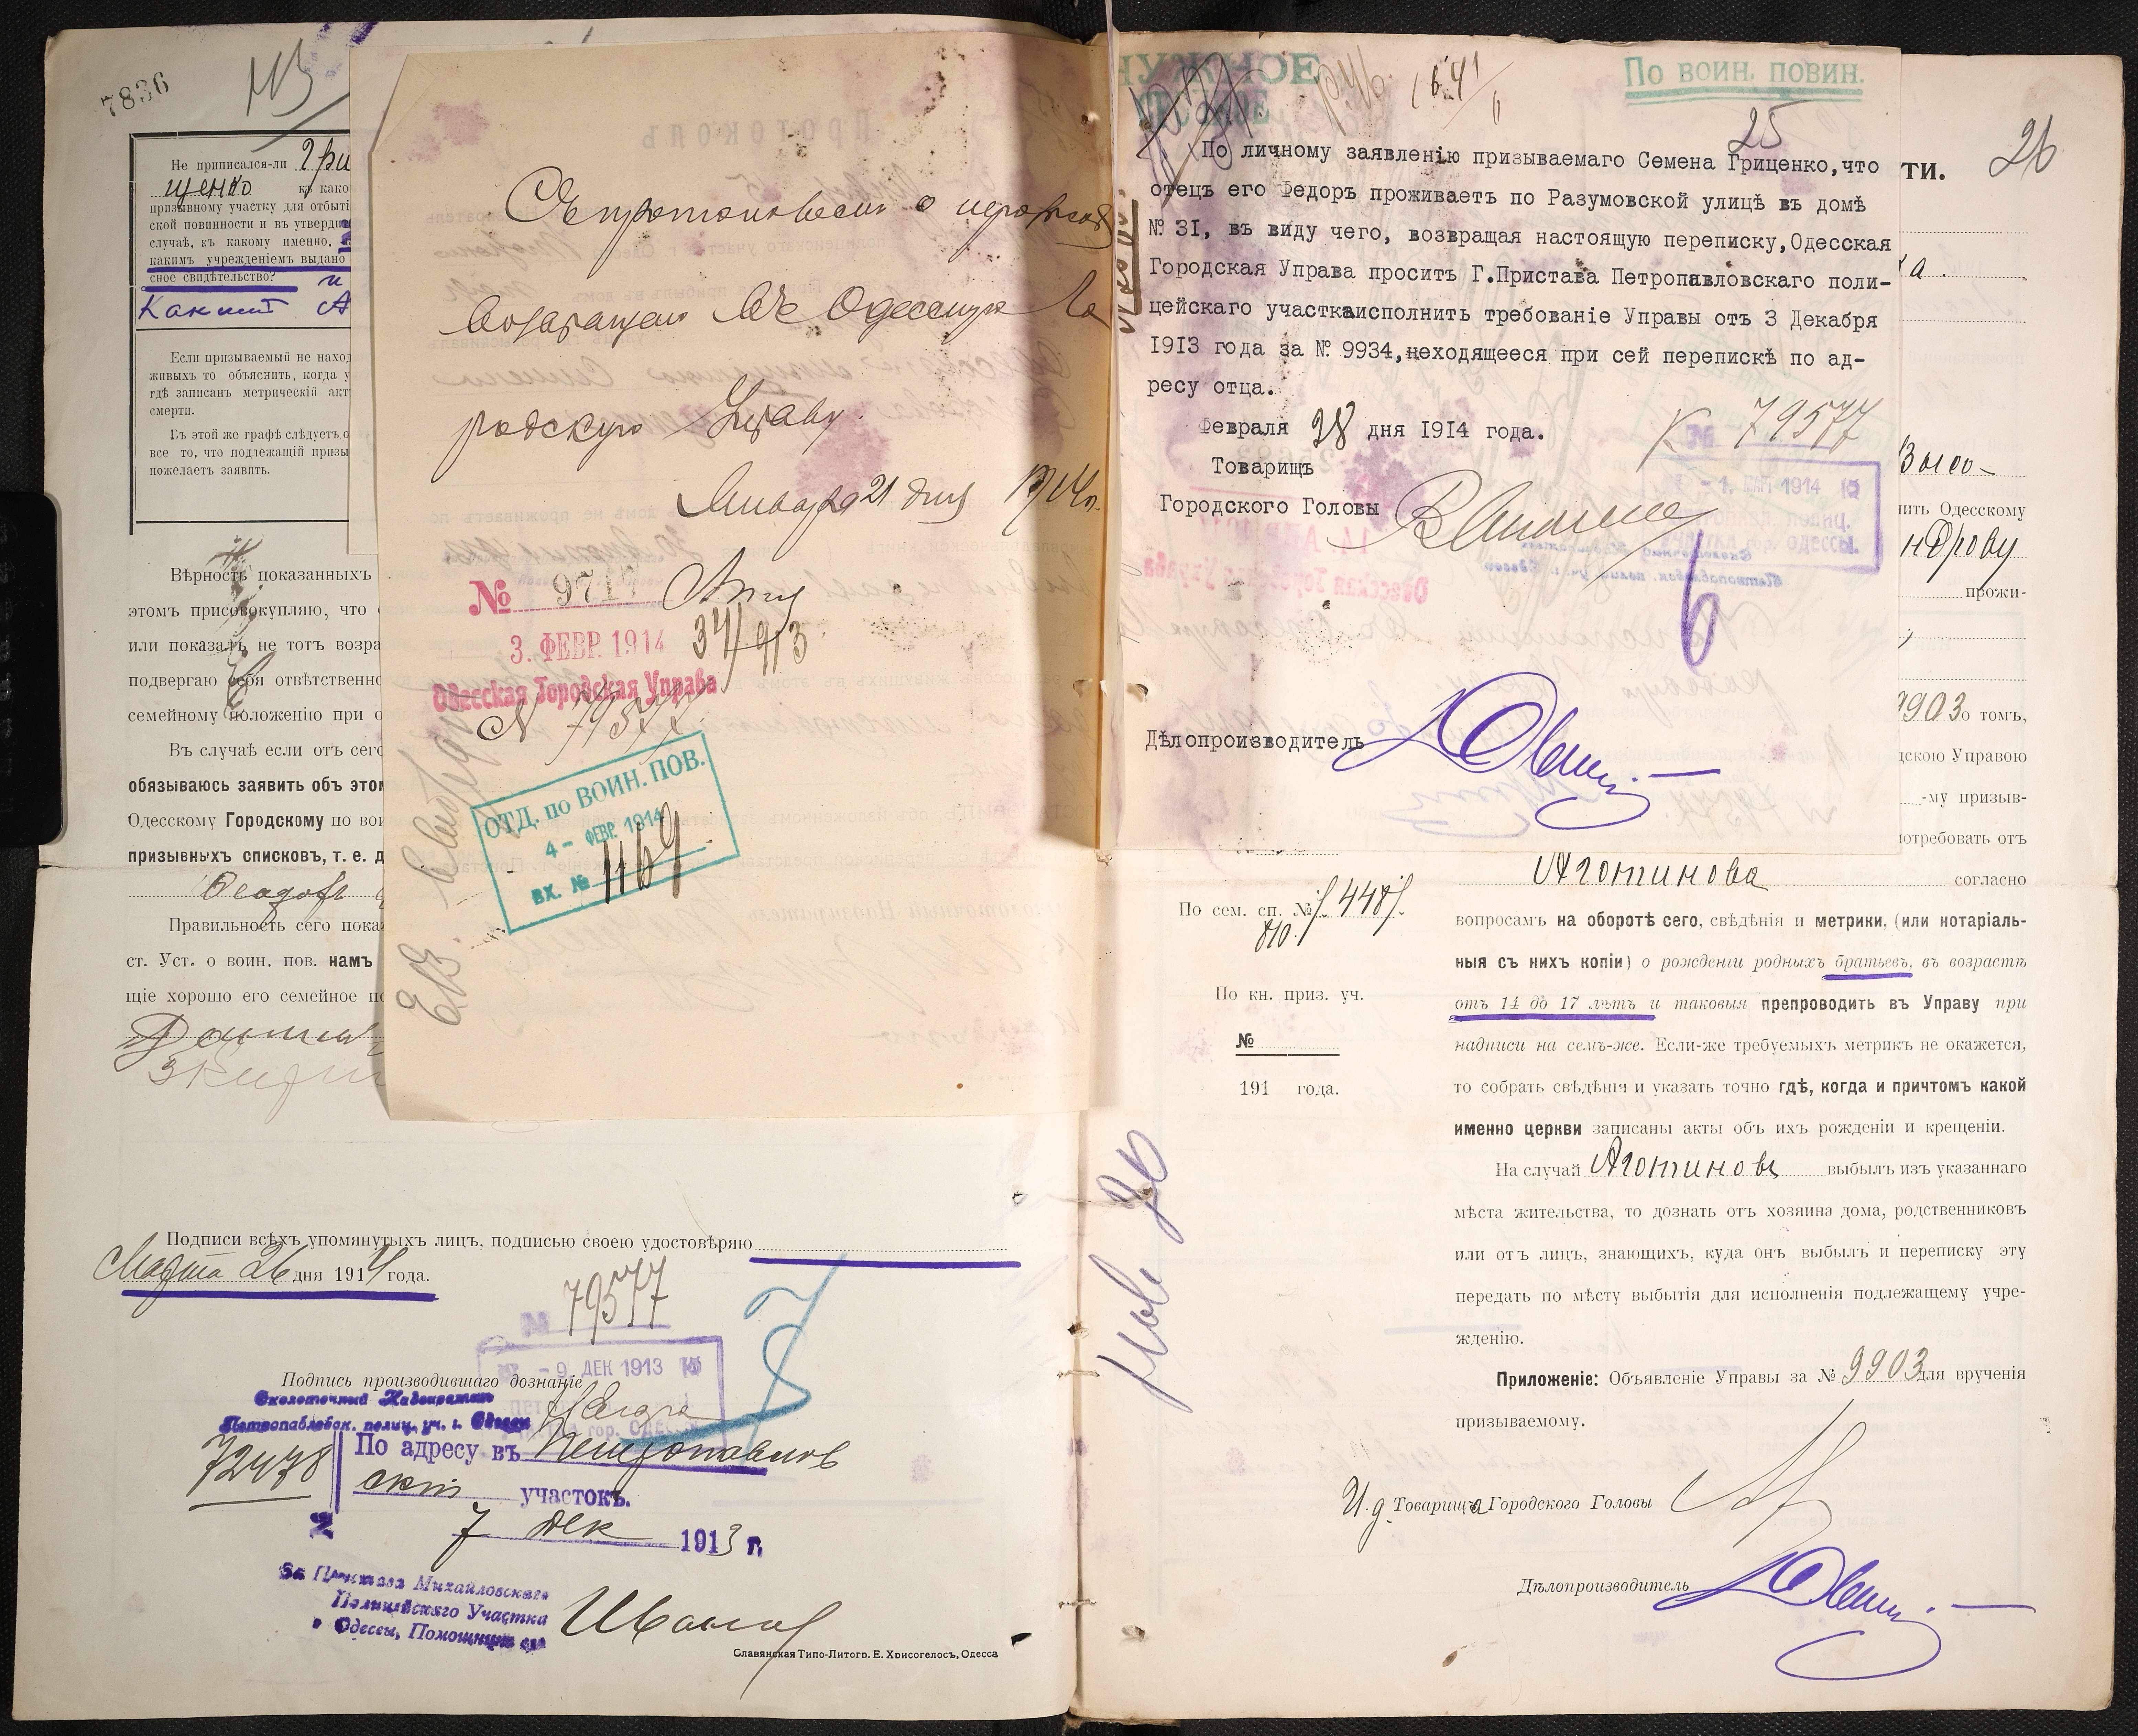 7836
Не приписался-ли Гри
щенко къ како
призывному участку для отбыті
ской повинности и въ утвердит
случаѣ, къ какому именно,
какимъ учрежденіемъ выдано
сное свидѣтельство?
Если призываемый не наход
живыхъ то объяснить, когда у
гдѣ записанъ метрическій акт
смерти.
Въ этой же графѣ слѣдуетъ о
все то, что подлежащій призы
пожелаетъ заявить.
Вѣрность показанныхъ
этомъ присовокупляю, что
или показалъ не тотъ возра
подвергаю себя отвѣтственно
семейному положенію при о
Въ случаѣ если отъ сего
обязываюсь заявить объ этом
Одесскому Городскому по вои
призывныхъ списковъ, т. е. д
Правильность сего пока
ст. Уст. о воин. пов. намъ
щіе хорошо его семейное по
Подписи всѣхъ упомянутыхъ лицъ, подписью своею удостовѣряю
Марта 26 дня 1914 года.
79577
- 9 ДЕК 1913
Подпись производившаго дознаніе
Околоточный Надзиратель
Петропавловск. полиц. уч. г. Одессы
72478
По адресу въ Петропавлов
скій участокъ.
№
7 Дек 1913 г.
За Пристава Михайловскаго
Полицейскаго Участка
г. Одессы, Помощникъ его
Славянская Типо-Литогр. Е. Хрисогелосъ, Одесса
Протоколъ
Съ протоколомъ о
Возвращаю въ Одесскую Го
родскую Управу.
Января 21 дня 1914 г.
№ 9717
3. ФЕВР. 1914
34/913
Одесская Городская Управа
N 79577
ОТД. по ВОИН. ПОВ.
4 - ФЕВР. 1914
ВХ. № 1169
НУЖНОЕ
По воин. повин.
25
По личному заявленію призываемаго Семена Гриценко,что
отецъ его Федоръ проживаетъ по Разумовской улицѣ въ домѣ
№ 31, въ виду чего, возвращая настоящую переписку,Одесская
Городская Управа проситъ Г.Пристава Петропавловскаго поли-
цейскаго участкаисполнить требованіе Управы отъ 3 Декабря
1913 года за № 9934,неходящееся при сей перепискѣ по ад-
ресу отца.
Февраля 28 дня 1914 года.
К 79577
Товарищъ
Городского Головы
- 1. МАР 1914
Дѣлопроизводитель
26
ТИ.
ка.
Высо-
нить Одесскому
ндрову
прожи-
9903 о томъ,
дскою Управою
-му призыв-
потребовать отъ
Аготинова
согласно
По сем. сп. №
По кн. приз. уч.
№
191 года.
вопросамъ на оборотѣ сего, свѣдѣнія и метрики, (или нотаріаль-
ныя съ нихъ копіи) о рожденіи родныхъ братьевъ, въ возрастѣ
отъ 14 до 17 лѣтъ и таковыя препроводить въ Управу при
надписи на семъ-же. Если-же требуемыхъ метрикъ не окажется,
то собрать свѣдѣнія и указать точно гдѣ, когда и причтомъ какой
именно церкви записаны акты объ ихъ рожденіи и крещеніи.
На случай Аготиновъ выбылъ изъ указаннаго
мѣста жительства, то дознать отъ хозяина дома, родственниковъ
или отъ лицъ, знающихъ, куда онъ выбылъ и переписку эту
передать по мѣсту выбытія для исполненія подлежащему учре-
жденію.
Приложеніе: Объявленіе Управы за № 9903 для врученія
призываемому.
И. д. Товарища Городского Головы
Дѣлопроизводитель